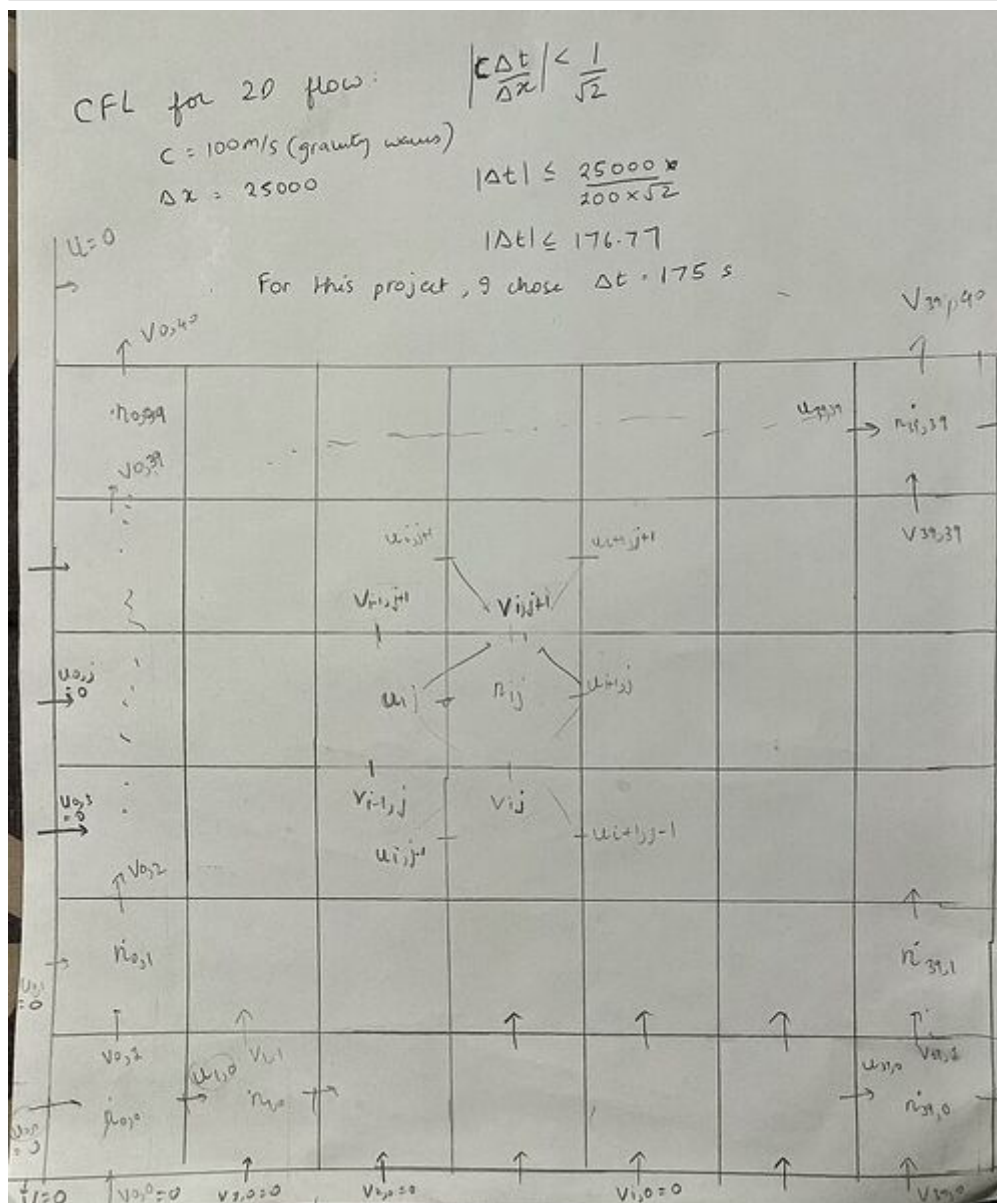 CFL for 2D flow: |CΔt/Δx| < 1/√2
C = 100m/s (gravity waves)
Δx = 25000
|Δt| ≤ 25000/200×√2
|Δt| ≤ 176.77
For this project, I chose Δt = 175 s
U=0
V0,40
V39,40
n0,39
n39,39
V0,39
V39,39
ui,j+1
ui+1,j+1
Vi-1,j+1
Vi,j+1
u0,j
=0
uij
nij
ui+1,j
u0,3
=0
Vi-1,j
Vij
ui+1,j-1
V0,2
n0,1
n39,1
=0
V0,1
V1,1
u1,0
u39,0
n0,0
n1,0
n39,0
V0,0=0
V1,0=0
V2,0=0
Vi,0=0
V39,0